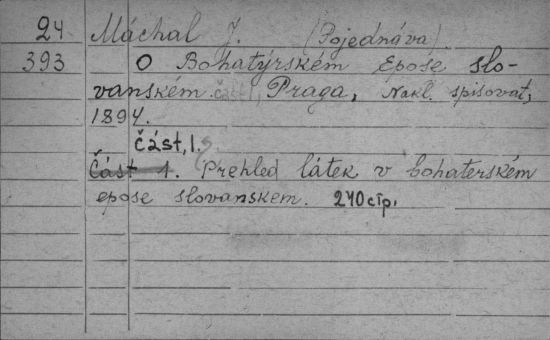 24 Máchal J. (Pojednáva)
393 O Bohatýrském Epose slo-
vanském. část I, Praga, Nakl. spisovat,
1894.
část, I.
Část 1. Přehled látek v bohaterském
epose slovanskem. 240 стр.